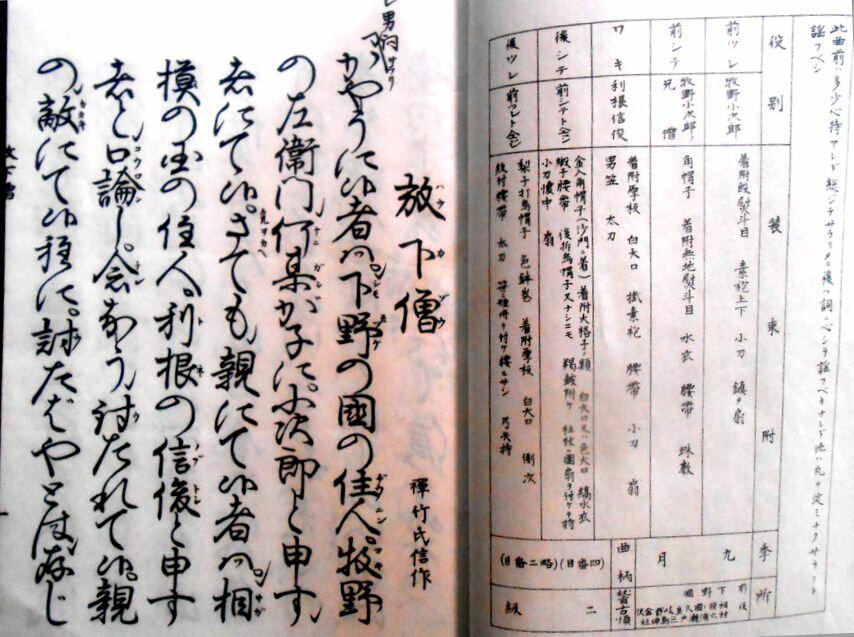 此曲前ハ多少心持アレド総ジテサラリメニ後ハ詞ノ心シテ謡フベキナレド地ハ丸ク淀ミナクサラリト
謡フベシ
役別 装束附 季 所
前ツレ 牧野小次郎 着附段熨斗目 素袍上下 小刀 鎮メ扇
前シテ 牧野小次郎ノ兄僧 角帽子 着附無地熨斗目 水衣 腰帯 珠数
ワキ 利根信俊 着附厚板 白大口 掛素袍 腰帯 小刀 扇
男笠 太刀
後シテ 前シテト仝ジ 金入角帽子(沙門ニ着) 着附大格子ノ類 白大口又ハ色大口 縞水衣
緞子腰帯 後折烏帽子又ナシニモ 羯鼓附ケ 柱杖ニ團扇ヲ付ケテ持
小刀懐中 扇
後ツレ 前ツレト仝ジ 梨子打烏帽子 色鉢巻 着附厚板 白大口 側次
紋付腰帯 太刀 笹ニ短冊ヲ付ケ腰ニサシ 弓矢持
九月
前 下野國
後
曲柄 (四番目)(略二番目)
稽古順 二級
放下僧
禪竹氏信作
男詞サラリ
かやうに候者は。下野の國の住人。牧野
の左衛門何某が子に。小次郎と申す
者にて候。さても親にて候者は。相
模の国の住人。利根の信俊と申す
者と口論し。念なう討たれて候。親
の敵にて候程に。討たばやとは存じ